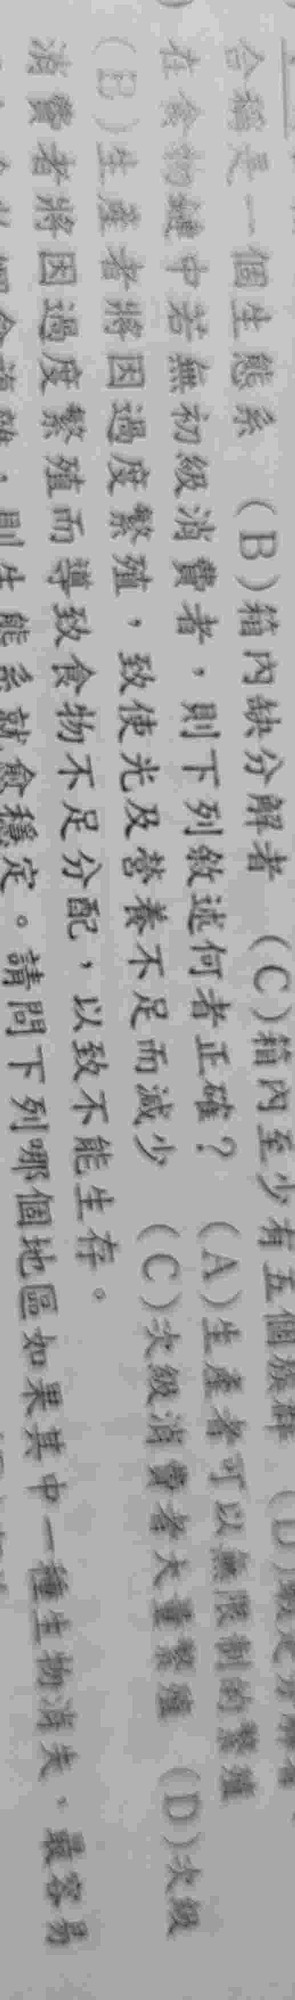 合稱是一個生態系 (B)箱內缺分解者 (C)箱內至少有五個族群 (D)
在食物鏈中若無初級消費者，則下列敘述何者正確？ (A)生產者可以無限制的繁殖
(B)生產者將因過度繁殖，致使光及營養不足而減少 (C)次級消費者大量繁殖 (D)次級
消費者將因過度繁殖而導致食物不足分配，以致不能生存。
則生態系就愈穩定。請問下列哪個地區如果其中一種生物消失，最容易